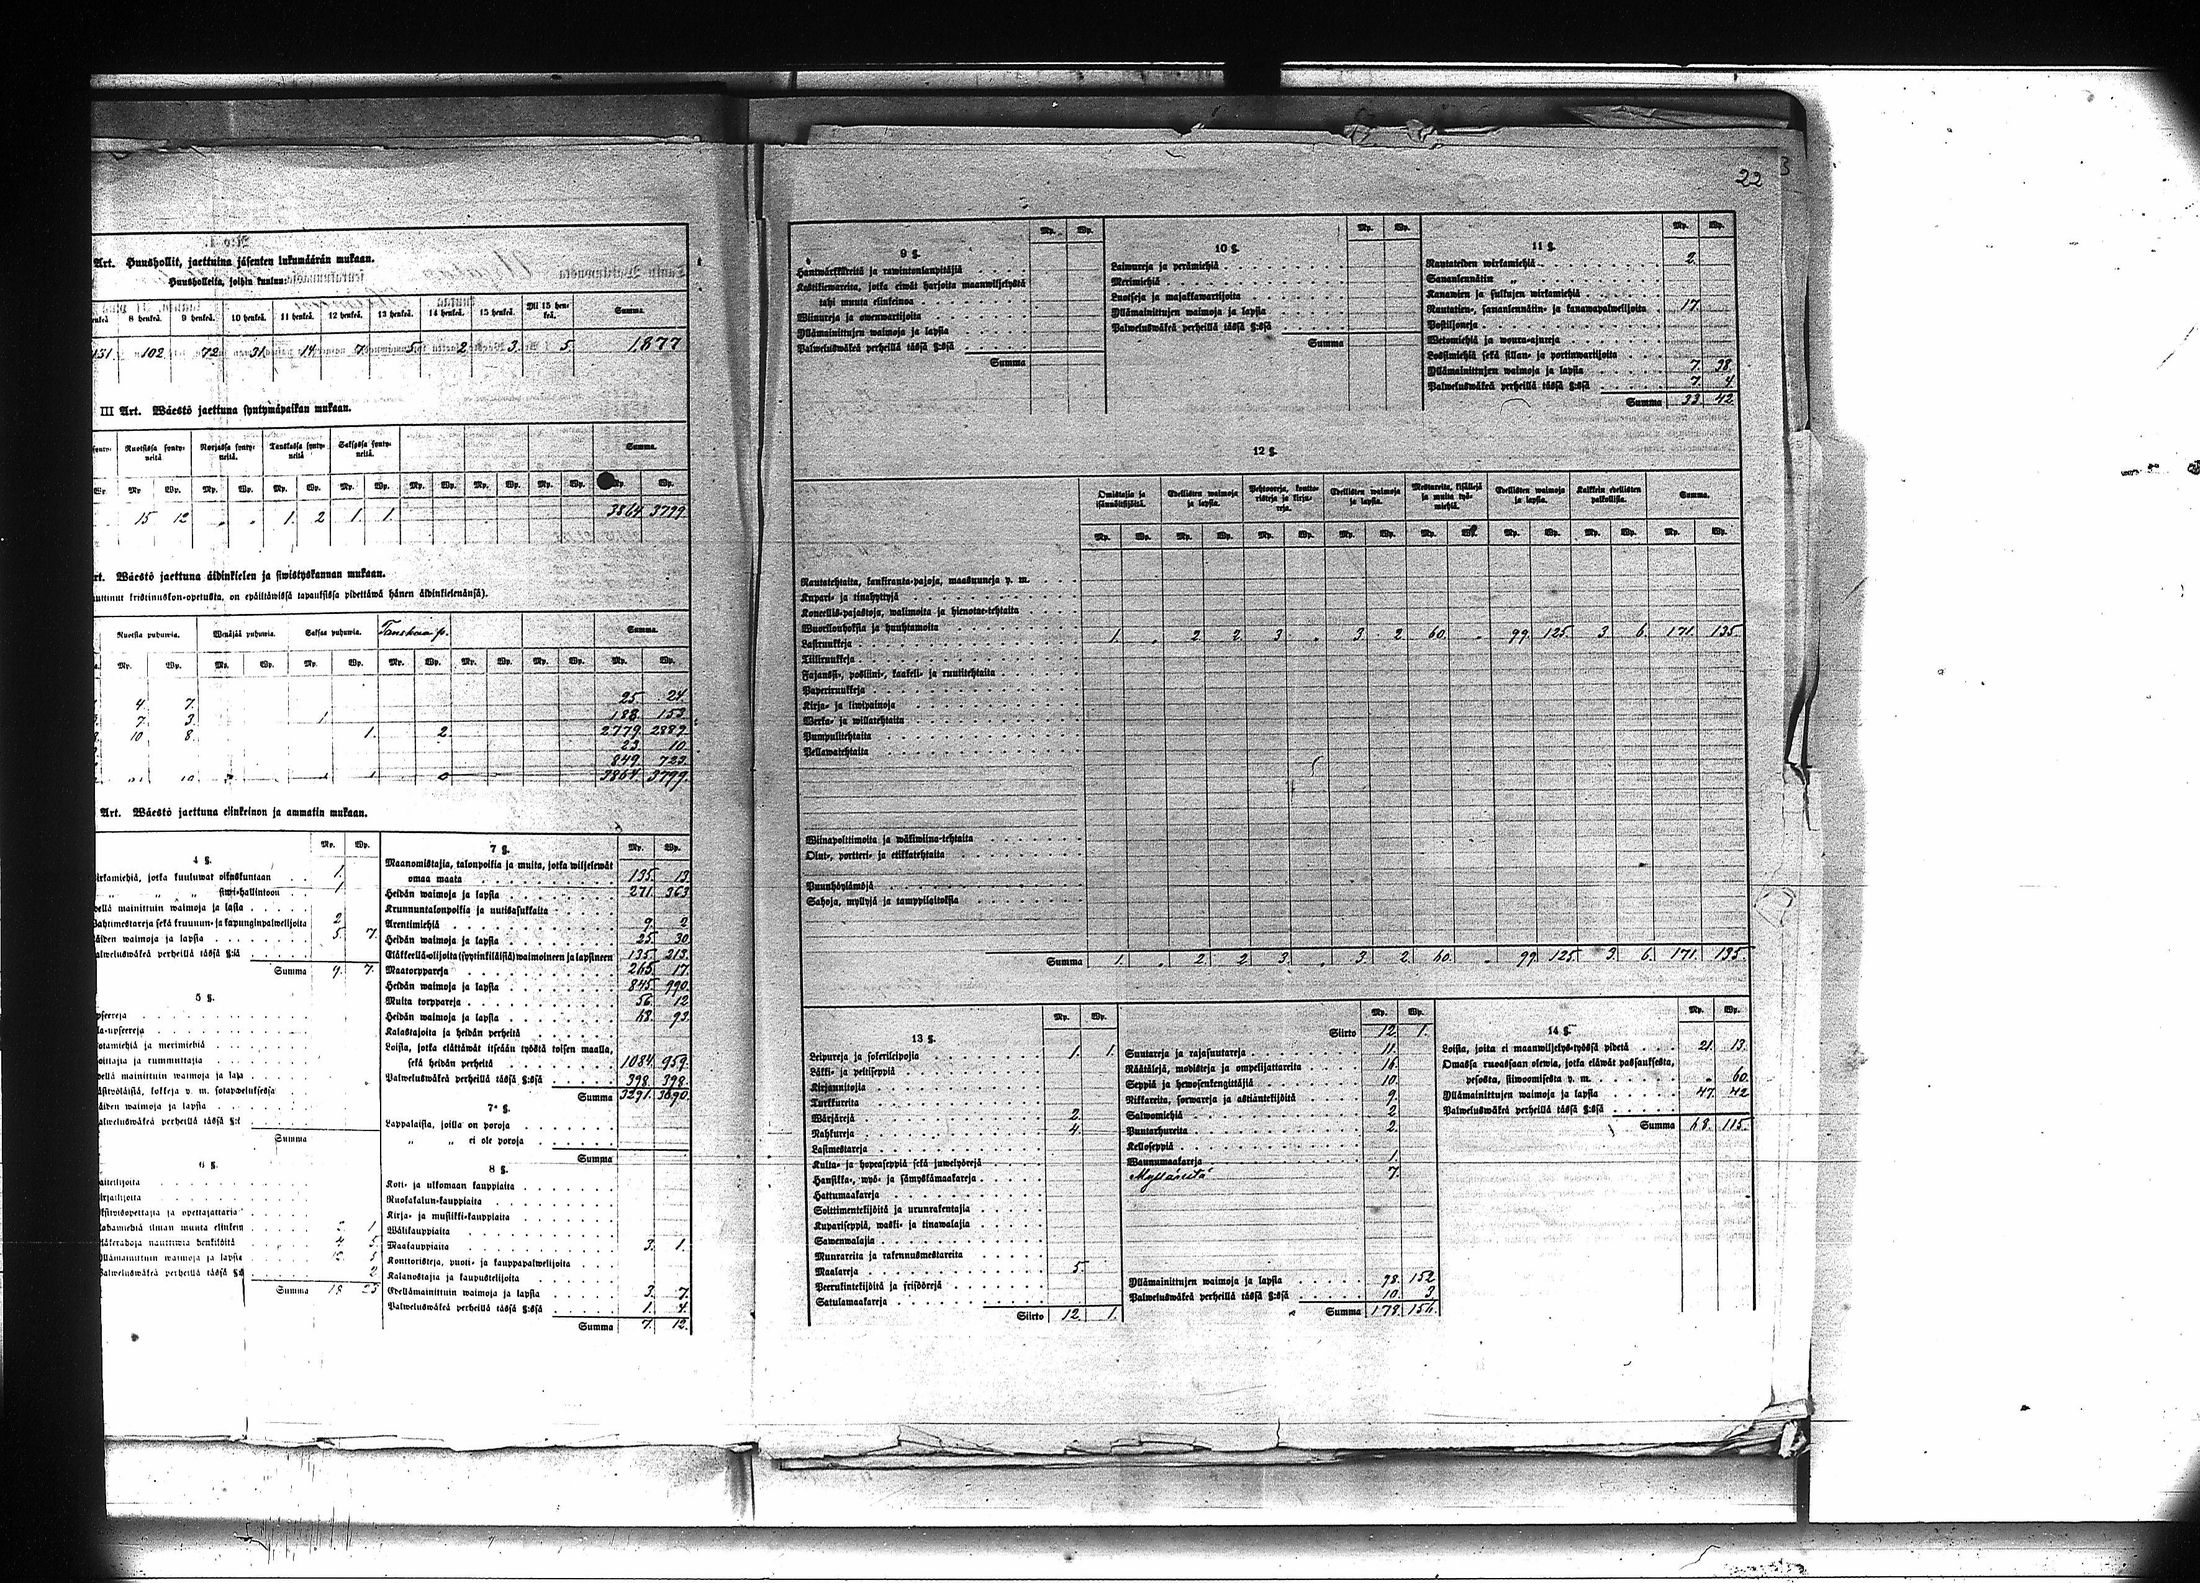 22
Art. Huushollit, jaettuina jäsenten lukumäärän mukaan.
Huusholleita, joihin kuuluu:
8 henkeä. 9 henkeä. 10 henkeä. 11 henkeä. 12 henkeä. 13 henkeä. 14 henkeä. 15 henkeä. Yli 15 henkeä. Summa.
131. 102 72 31. 14 7. 5. 2. 3. 5. 1,877
III Art. Wäestö jaettuna syntymäpaikan mukaan.
Ruotsissa syntyneitä. Norjassa syntyneitä. Tanskassa syntyneitä Saksassa syntyneitä. Summa.
Mp. Wp. Mp. Wp. Mp. Wp. Mp. Wp. Mp. Wp. Mp. Wp. Mp. Wp.
15 12 1. 2 1. 1. 3864 3799
Art. Wäestö jaettuna äidinkielen ja siwistyskannan mukaan.
nauttinut kristinuskon-opetusta, on epäiltäwissä tapauksissa pidettäwä hänen äidinkielenänsä).
Ruotsia puhuwia. Wenäjää puhuwia. Saksaa puhuwia. Tanskaa p. Summa.
Mp. Wp. Mp. Wp. Mp. Wp. Mp. Wp. Mp. Wp. Mp. Wp. Mp. Wp.
4 7. 25 24
7. 3. 1 188 153
10 8 1. 2 2779 2889
23. 10
849. 723
3864. 3799.
Art. Wäestö jaettuna elinkeinon ja ammatin mukaan.
4 §. Mp. Wp.
wirkamiehiä, jotka kuuluwat oikeuskuntaan 1.
„ „ „ siwi-hallintoon 1
mainittuin waimoja ja lapsia
Wahtimestareja sekä kruunun- ja kapunginpalwelijoita 2
Näiden waimoja ja lapsia 5. 7.
Palweluswäkeä perheillä tässä §:ssä
Summa 9. 7.
5 §.
Upseereja
Ala-upseereja
Sotamiehiä ja merimiehiä
Soittajia ja rummuttajia
mainittuin waimoja ja lapsia
Käsityöläisiä, kokkeja y. m. sotapalweluksessa
Näiden waimoja ja lapsia
Palweluswäkeä perheillä tässä §:ssä
Summa
6 §.
Taiteilijoita
Kirjailijoita
Yksityisopettajia ja opettajattaria
ilman muuta elinkeinoa 1
nauttiwia henkilöitä 4 5
Yllämainittuin waimoja ja lapsia
Palweluswäkeä perheillä tässä §:ssä 2
Summa 18 25
7 §. Mp. Wp.
Maanomistajia, talonpoikia ja muita, jotka wiljelewät
omaa maata 135. 13
Heidän waimoja ja lapsia 271. 363
Kruununtalonpoikia ja uutisasukkaita
Arentimiehiä 9. 2
Heidän waimoja ja lapsia 25 30
Eläkkeellä-olijoita (syytinkiläisiä) waimoineen ja lapsineen 135. 213.
Maatorppareja 265. 17.
Heidän waimoja ja lapsia 845. 990.
Muita torppareja 56 12
Heidän waimoja ja lapsia 68. 93.
Kalastajoita ja heidän perheitä
Loisia, jotka elättäwät itseään työstä toisen maalla,
sekä heidän perheitä 1084. 959.
Palweluswäkeä perheillä tässä §:ssä 398. 398.
Summa 3291. 3090.
7ᵃ §.
Lappalaisia, joilla on poroja
„ „ ei ole poroja
Summa
8 §.
Koti- ja ulkomaan kauppiaita
Ruokakalun-kauppiaita
Kirja- ja musiikki-kauppiaita
Wälikauppiaita
Maakauppiaita 3. 1.
Konttoristeja, puoti- ja kauppapalwelijoita
Kalanostajia ja kaupustelijoita
Edellämainittuin waimoja ja lapsia 3. 7.
Palweluswäkeä perheillä tässä §:ssä 1. 4.
Summa 7. 12.
9 §. Mp. Wp.
Hantwärkkäreitä ja rawintolanpitäjiä
Kestikiewareita, jotka eiwät harjoita maanwiljelystä
tahi muuta elinkeinoa
Wiinureja ja owenwartijoita
Yllämainittujen waimoja ja lapsia
Palweluswäkeä perheillä tässä §:ssä
Summa
10 §. Mp. Wp.
Laiwureja ja perämiehiä
Merimiehiä
Luotseja ja majakkawartijoita
Yllämainittujen waimoja ja lapsia
Palweluswäkeä perheillä tässä §:ssä
Summa
11 §. Mp. Wp.
Rautateiden wirkamiehiä 2.
Sananlennätin „
Kanawien ja sulkujen wirkamiehiä
Rautatien-, sananlennätin- ja kanawapalwelijoita 17.
Postiljoneja
Wetomiehiä ja woura-ajureja
Lossimiehiä sekä sillan- ja portinwartijoita
Yllämainittujen waimoja ja lapsia 7. 38.
Palweluswäkeä perheillä tässä §:ssä 7. 4
Summa 33. 42
12 §.
Omistajia ja isännöitsijöitä. Edellisten waimoja ja lapsia. Pehtooreja, konttoristeja ja kirjureja. Edellisten waimoja ja lapsia. Mestareita, kisällejä ja muita työmiehiä. Edellisten waimoja ja lapsia. Kaikkein edellisten palkollisia. Summa.
Mp. Wp. Mp. Wp. Mp. Wp. Mp. Wp. Mp. Wp. Mp. Wp. Mp. Wp. Mp. Wp.
Rautatehtaita, kankirauta-pajoja, masuuneja y. m.
Kupari- ja tinahyttyjä
Koneellis-pajastoja, walimoita ja hienotae-tehtaita
Wuorilouhoksia ja huuhtamoita
Lasiruukkeja 1. . 2. 2. 3. . 3. 2. 60. . 99. 125. 3. 6. 171. 135.
Tiiliruukkeja
Fajanssi-, posliini-, kaakeli- ja ruutitehtaita
Paperiruukkeja
Kirja- ja kiwipainoja
Werka- ja willatehtaita
Pumpulitehtaita
Pellawatehtaita
Wiinapolttimoita ja wäkiwiina-tehtaita
Olut-, portteri- ja etikkatehtaita
Puunhöyläämöjä
Sahoja, myllyjä ja tamppilaitoksia
Summa 1. . 2. 2. 3. . 3. 2. 60. . 99 125. 3. 6. 171. 135.
13 §. Mp. Wp.
Leipureja ja sokerileipojia 1. 1.
Läkki- ja peltiseppiä
Kirjannitojia
Turkkureita
Wärjärejä 2.
Nahkureja 4.
Lasimestareja
Kulta- ja hopeaseppiä sekä juwelyörejä
Hansikka-, wyö- ja sämyskämaakareja
Hattumaakareja
Soittimentekijöitä ja urunrakentajia
Kupariseppiä, waski- ja tinawalajia
Sawenwalajia
Muurareita ja rakennusmestareita
Maalareja 5.
Peerukintekijöitä ja frisöörejä
Satulamaakareja
Siirto 12. 1.
Mp. Wp.
Siirto 12. 1.
Suutareja ja rajasuutareja 11.
Räätälejä, modisteja ja ompelijattareita 16.
Seppiä ja hewosenkengittäjiä 10.
Nikkareita, sorwareja ja astiantekijöitä 9.
Salwomiehiä 2
Puutarhureita 2.
Kelloseppiä
Waunumaakareja 1.
Mylläreitä 7.
Yllämainittujen waimoja ja lapsia 98. 152
Palweluswäkeä perheillä tässä §:ssä 10. 3
Summa 178. 156.
14 §. Mp. Wp.
Loisia, joita ei maanwiljelys-työssä pidetä 21. 13.
Omassa ruoassaan olewia, jotka eläwät passauksesta,
pesosta, siiwoomisesta y. m. . 60.
Yllämainittujen waimoja ja lapsia 47. 42
Palweluswäkeä perheillä tässä §:ssä
Summa 68. 115.